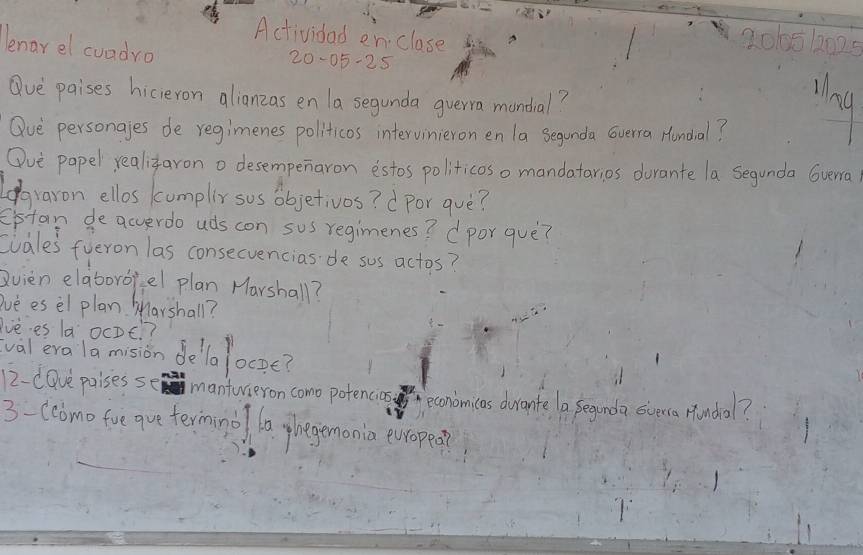 llenar el cuadro
Actividad en Clase
20-05-25
20/05/2025
Qué paises hicieron alianzas en la segunda guerra mundial?
Qué personajes de regimenes politicos intervinieron en la Segunda Guerra Mundial?
Qué papel realizaron o desempeñaron éstos politicos o mandatarios durante la Segunda Guerra
Lograron ellos cumplir sus objetivos? ¿Por qué?
Estan de acuerdo uds con sus regimenes? ¿por qué?
Cuáles fueron las consecuencias de sus actos?
Quién elaboró el plan Marshall?
Qué es el plan Marshall?
Qué es la OCDE?
Cuál era la misión de la OCDE?
12-¿Qué paises se mantuvieron como potencias económicas durante la Segunda Guerra Mundial?
3-¿Cómo fue que terminó la hegemonia europea?